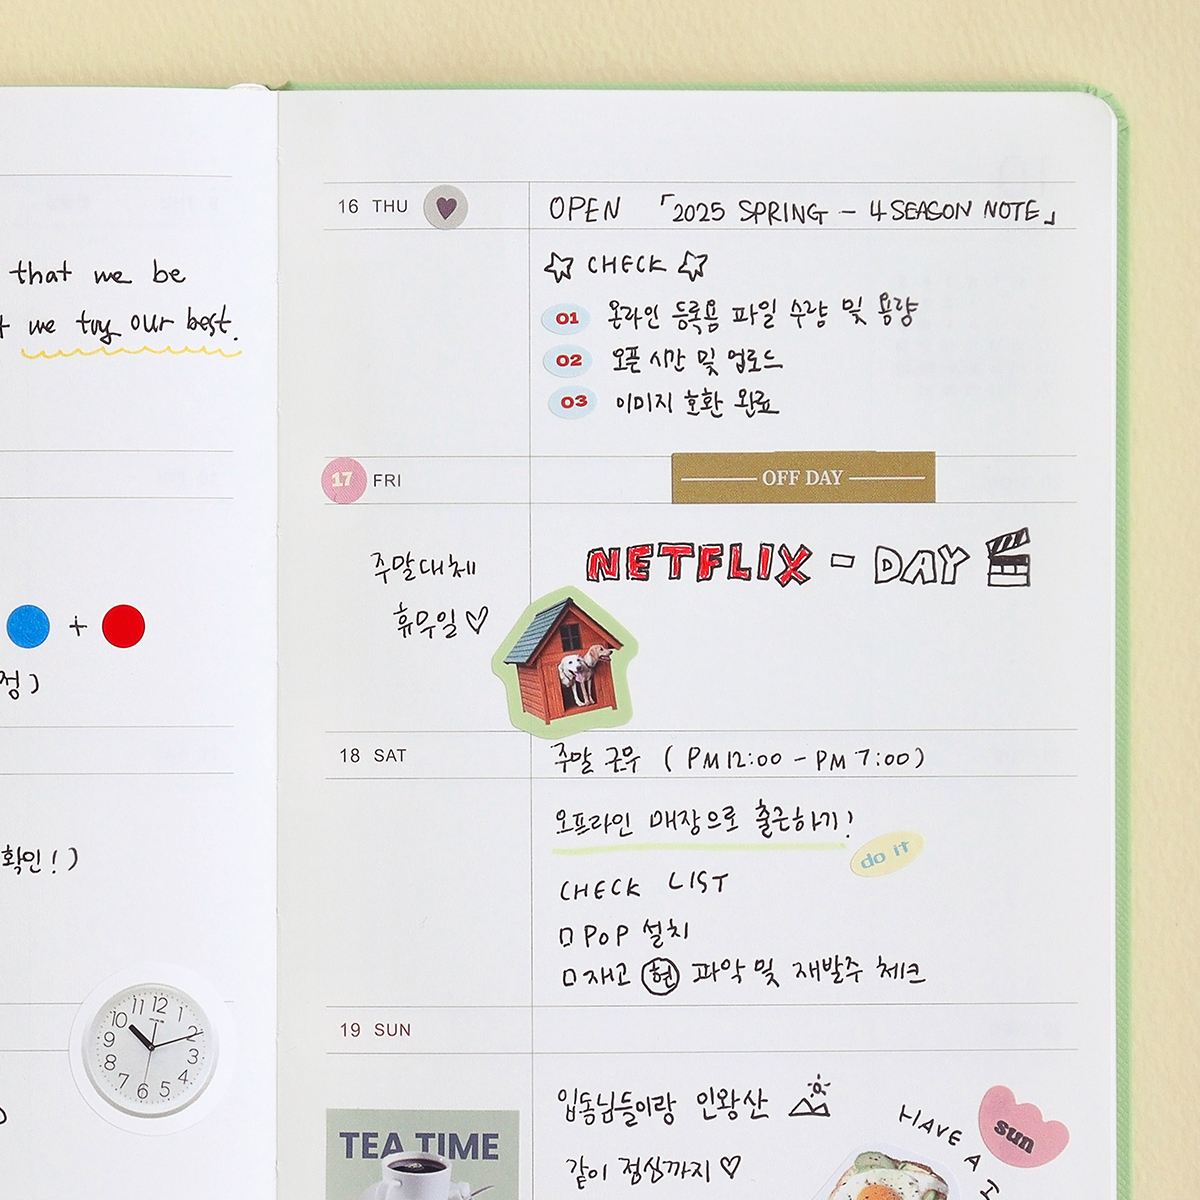 that we be
we try our best.
+
정)
확인!)
16 THU
OPEN 「2025 SPRING - 4 SEASON NOTE」
☆ CHECK ☆
01 온라인 등록용 파일 수량 및 용량
02 오픈 시간 및 업로드
03 이미지 호환 완료
17 FRI
OFF DAY
주말대체
휴무일♡
NETFLIX - DAY
18 SAT
주말 근무 (PM12:00 - PM 7:00)
오프라인 매장으로 출근하기!
do it
CHECK LIST
□ PoP 설치
□ 재고 현 파악 및 재발주 체크
19 SUN
입동님들이랑 인왕산
같이 정상까지 ♡
TEA TIME
HAVE A
sun
10 11 12 1 2 3 4 5 6 7 8 9